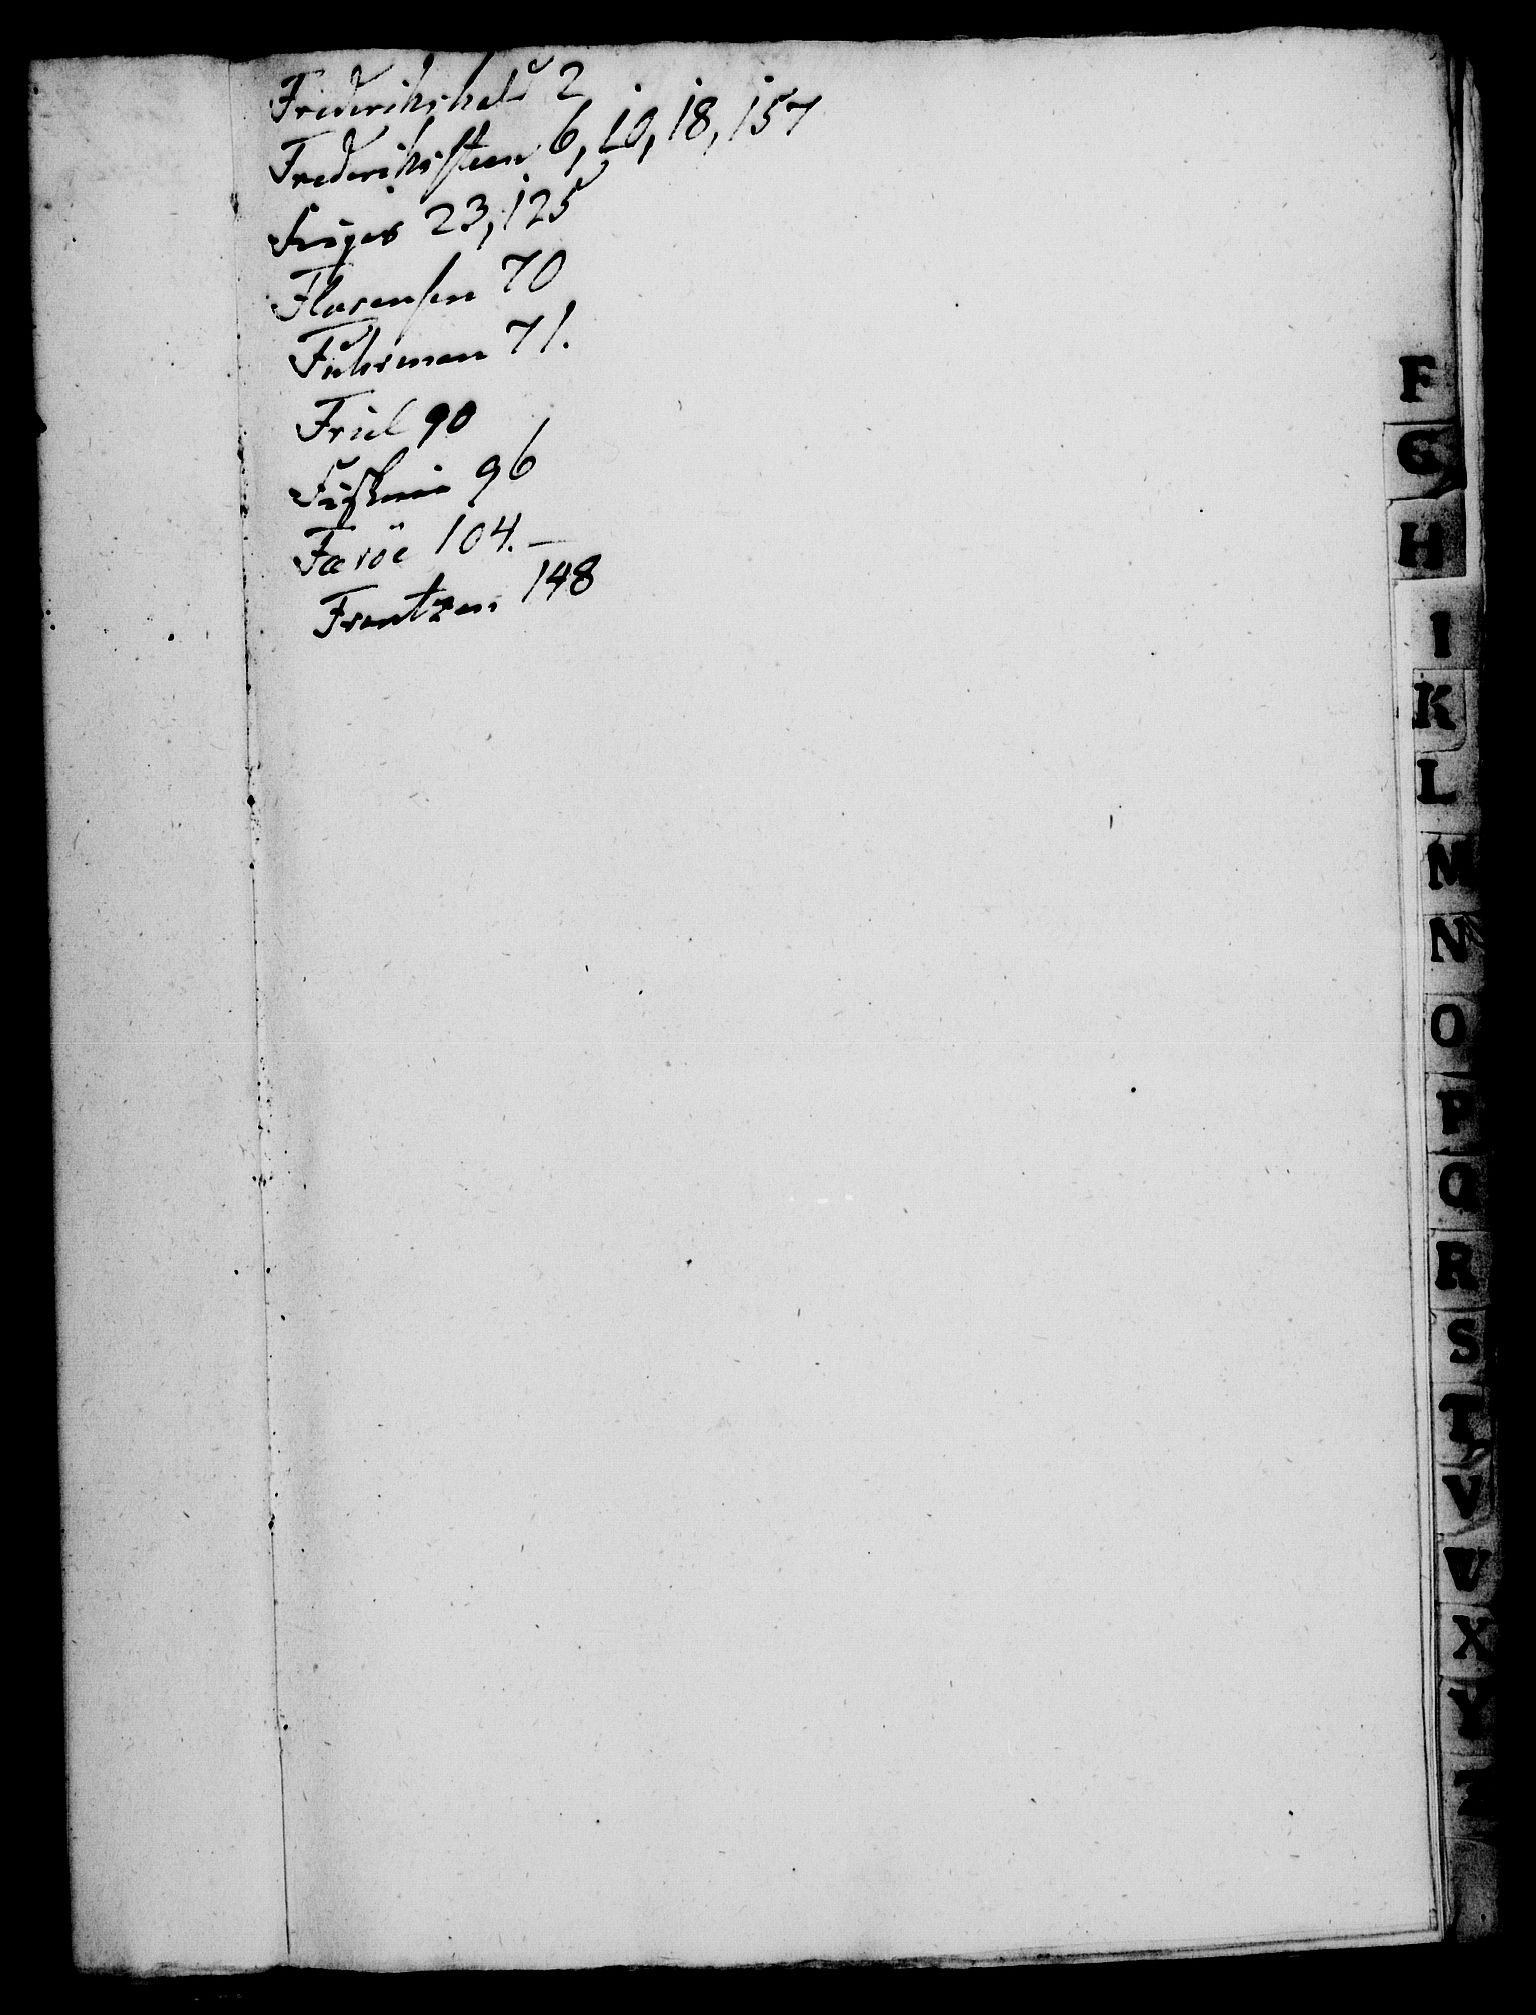 Friderikshald 2
Frederiksteen 6, 10, 18, 157
23, 125
Florensen 70
Fuhrman 71.
Friel 90
96
Færöe 104. —
Frantzen 148
F
G
H
I
K
L
M
N
O
P
Q
R
S
T
V
U
X
Y
Z